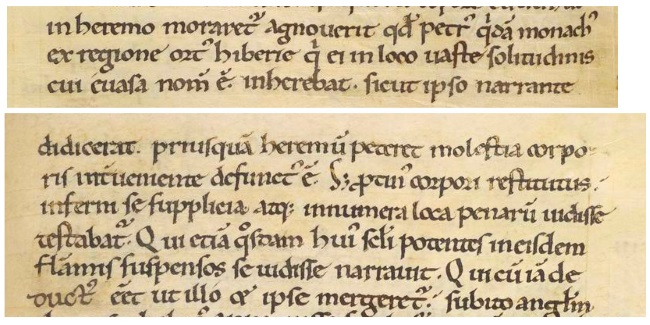 in heremo moraret᷑ agnouerit qđ petr᷒ q̇dā monach᷒
ex regione ort᷒ hiberie q̇ ei in loco uaste solitudinis
cui euasa nom̄ ē. inherebat. sicut ipso narrante
didicerat. priusquā heremū peteret molestia corpo-
ris interueniente defunct᷒ ē. S; ꝓtin᷒ corpori restitutus.
inferni se supplicia atq; innumera loca penarū uidisse
testabat᷑. Qui etiā q̊sdam hui᷒ scl̄i potentes in eisdem
flāmis suspensos se uidisse narrauit. Qui cū iā de
duct᷒ eēt ut illo & ipse mergeret᷑. subito angl̄m